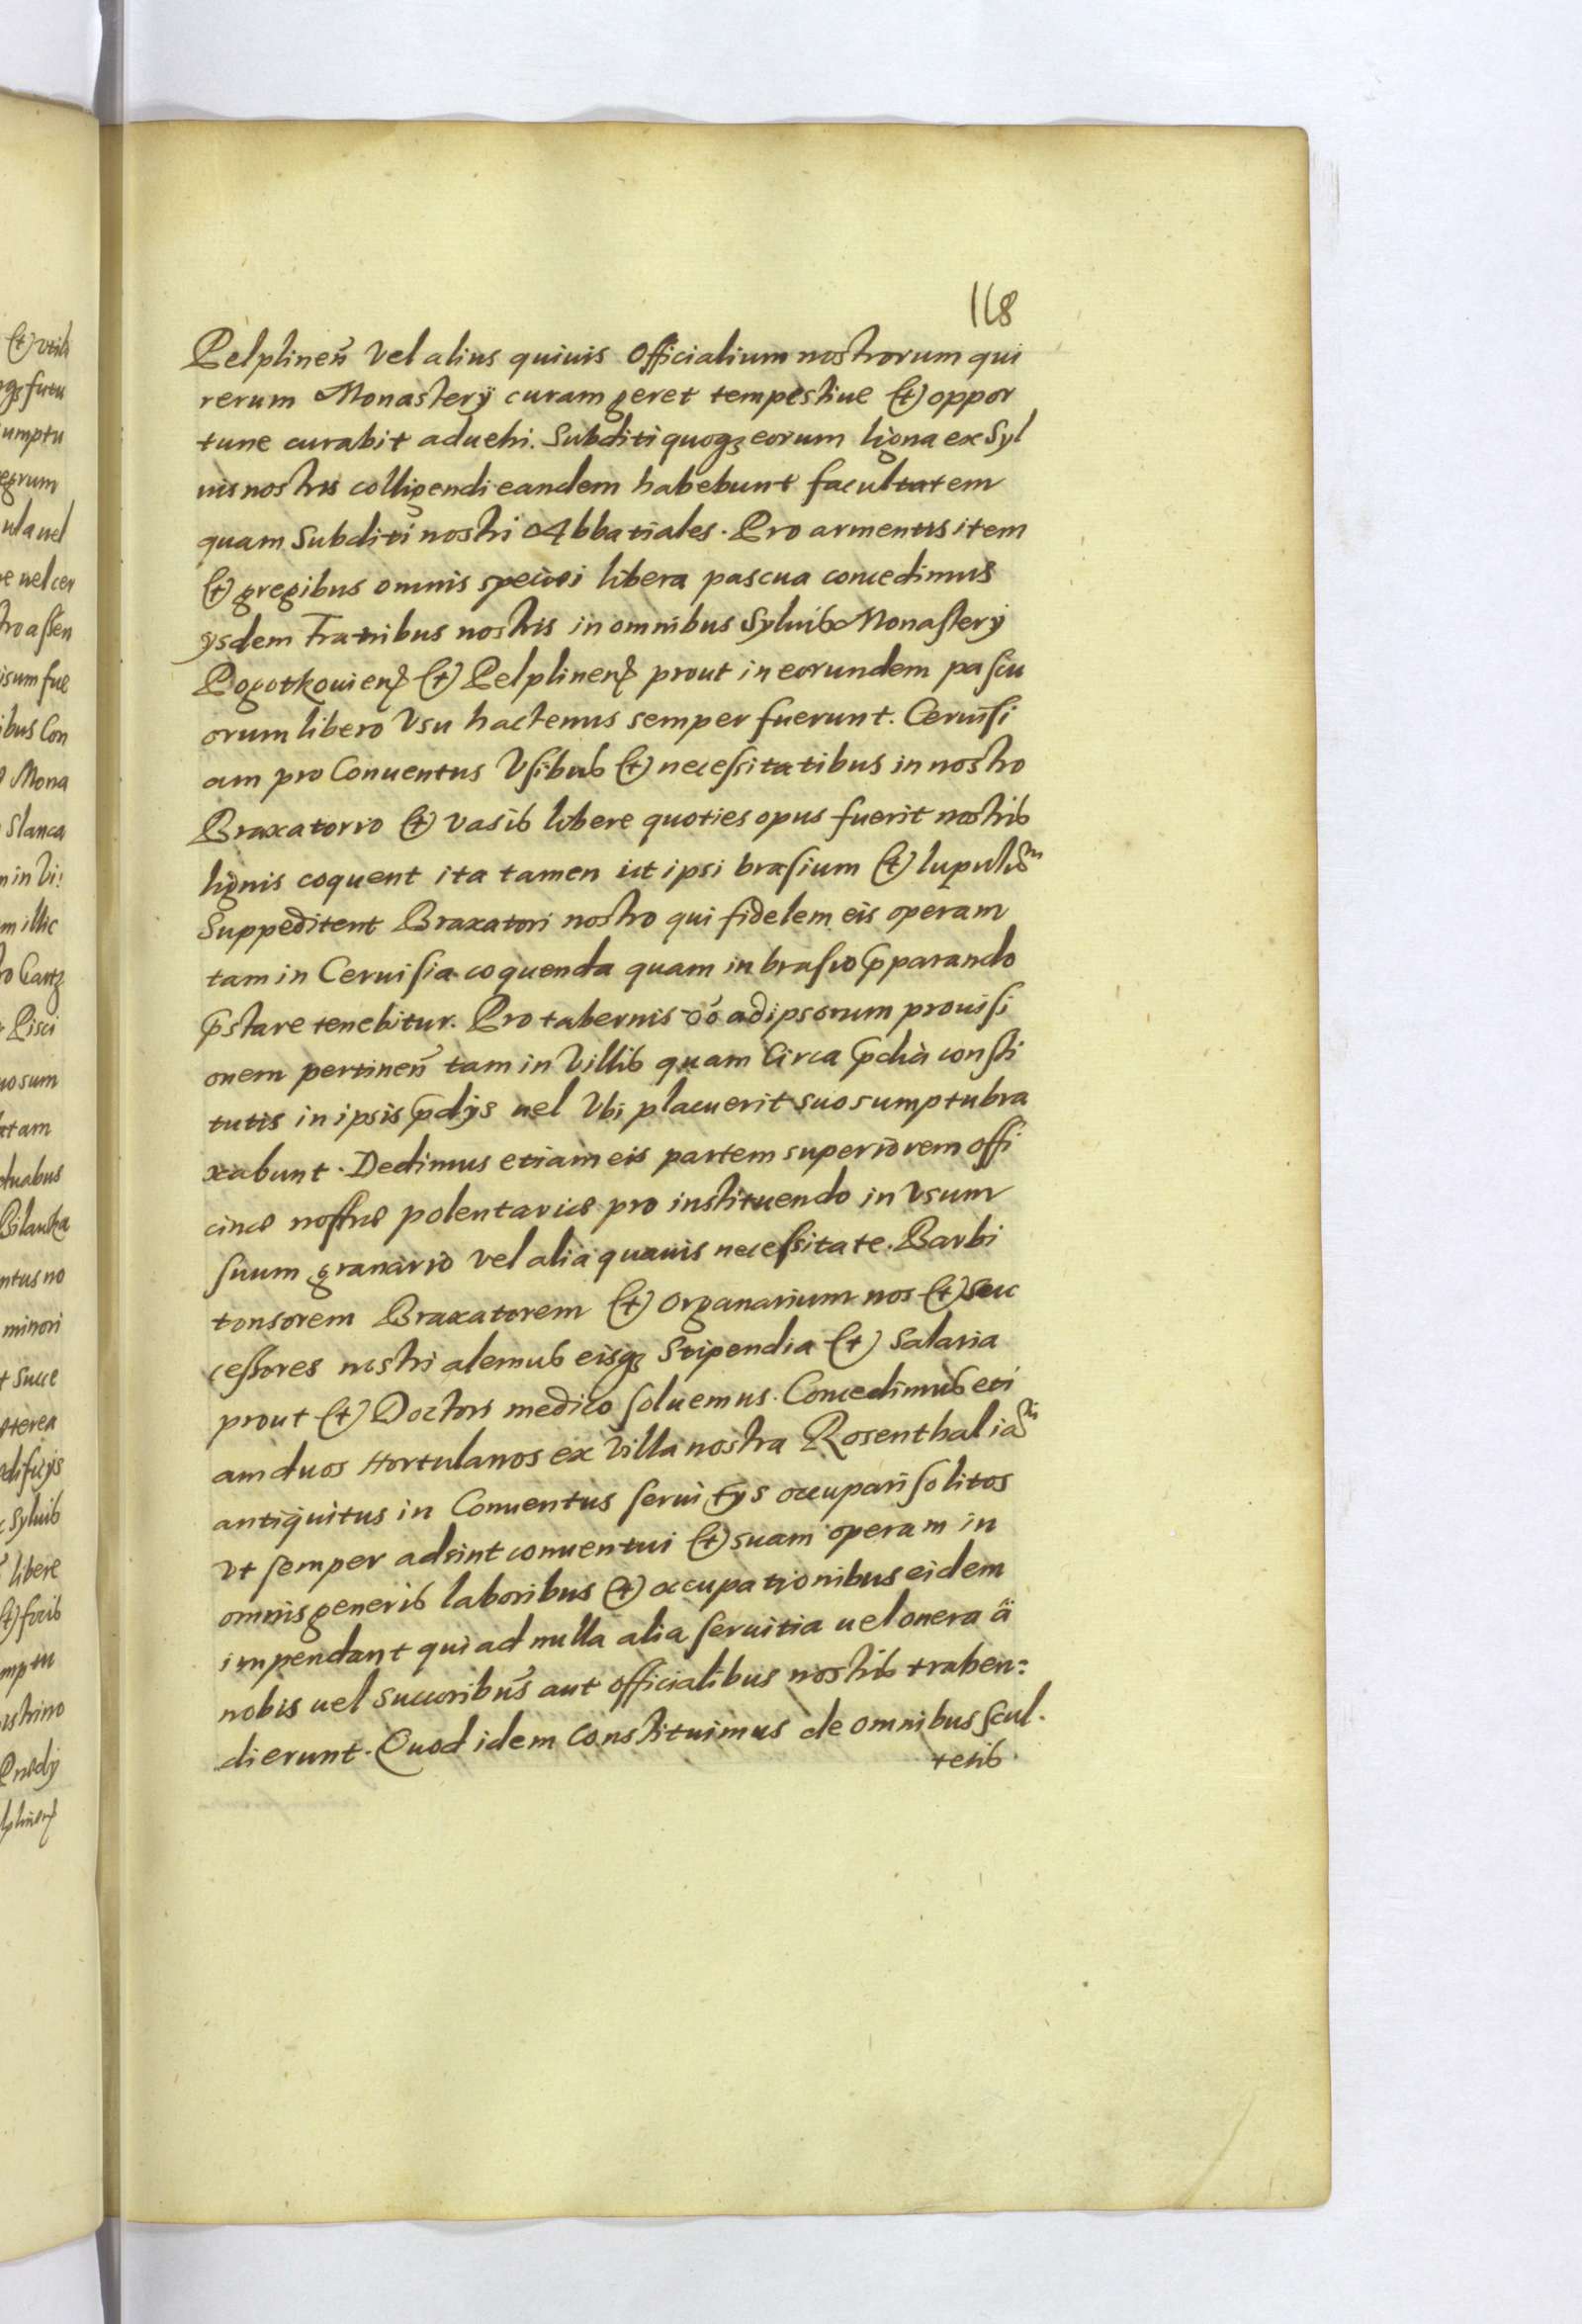 118
Pelplinen̄ vel alius quiuis Officialium nostrorum qui
rerum Monasterÿ curam geret tempestiue et oppor
tune curabit aduehi. Subditi quoqꝫ eorum ligna ex Syl
uis nostris colligendi eandem habebunt facultatem
quam Subditi nostri Abbatiales. Pro armentis item
et gregibus omnis speciei libera pascua concedimus
ijsdem Fratribus nostris in omnibus Syluis Monasterij
Pogotkouienꝭ et Pelplinenꝭ prout in eorundem pascu
orum libero Vsu hactenus semper fuerunt. Ceruisi
am pro Conuentus Vsibus et necessitatibus in nostro
Braxatorio et vasis libere quoties opus fuerit nostris
lignis coquent ita tamen ut ipsi brasium et lupulum
Suppeditent Braxatori nostro qui fidelem eis operam
tam in Ceruisia coquenda quam in brasio p̄parando
p̄stare tenebitur. Pro tabernis oō ad ipsorum prouisi
onem pertinen̄ tam in Villis quam Circa p̄dia consti
tutis in ipsis p̄dijs uel Vbi placuerit suo sumptu bra
xabunt. Dedimus etiam eis partem superiorem offi
cinæ nostræ polentariæ pro instituendo in Vsum
suum granario vel alia quauis necessitate. Barbi
tonsorem Braxatorem et Organarium nos et Suc
cessores nostri alemus eisqꝫ Stipendia et Salaria
prout et Doctori medico soluemus. Concedimus eti
am duos Hortulanos ex Villa nostra Rosenthaliam
antiquitus in Conuentus seruitijs occupari solitos
Vt semper adsint conuentui et suam operam in
omnis generis laboribus et occupationibus eidem
impendant qui ad nulla alia seruitia uel onera â
nobis uel Succoribus̄ aut officialibus nostris traben:
di erunt. Quod idem Constituimus de omnibus Scul.
tetis